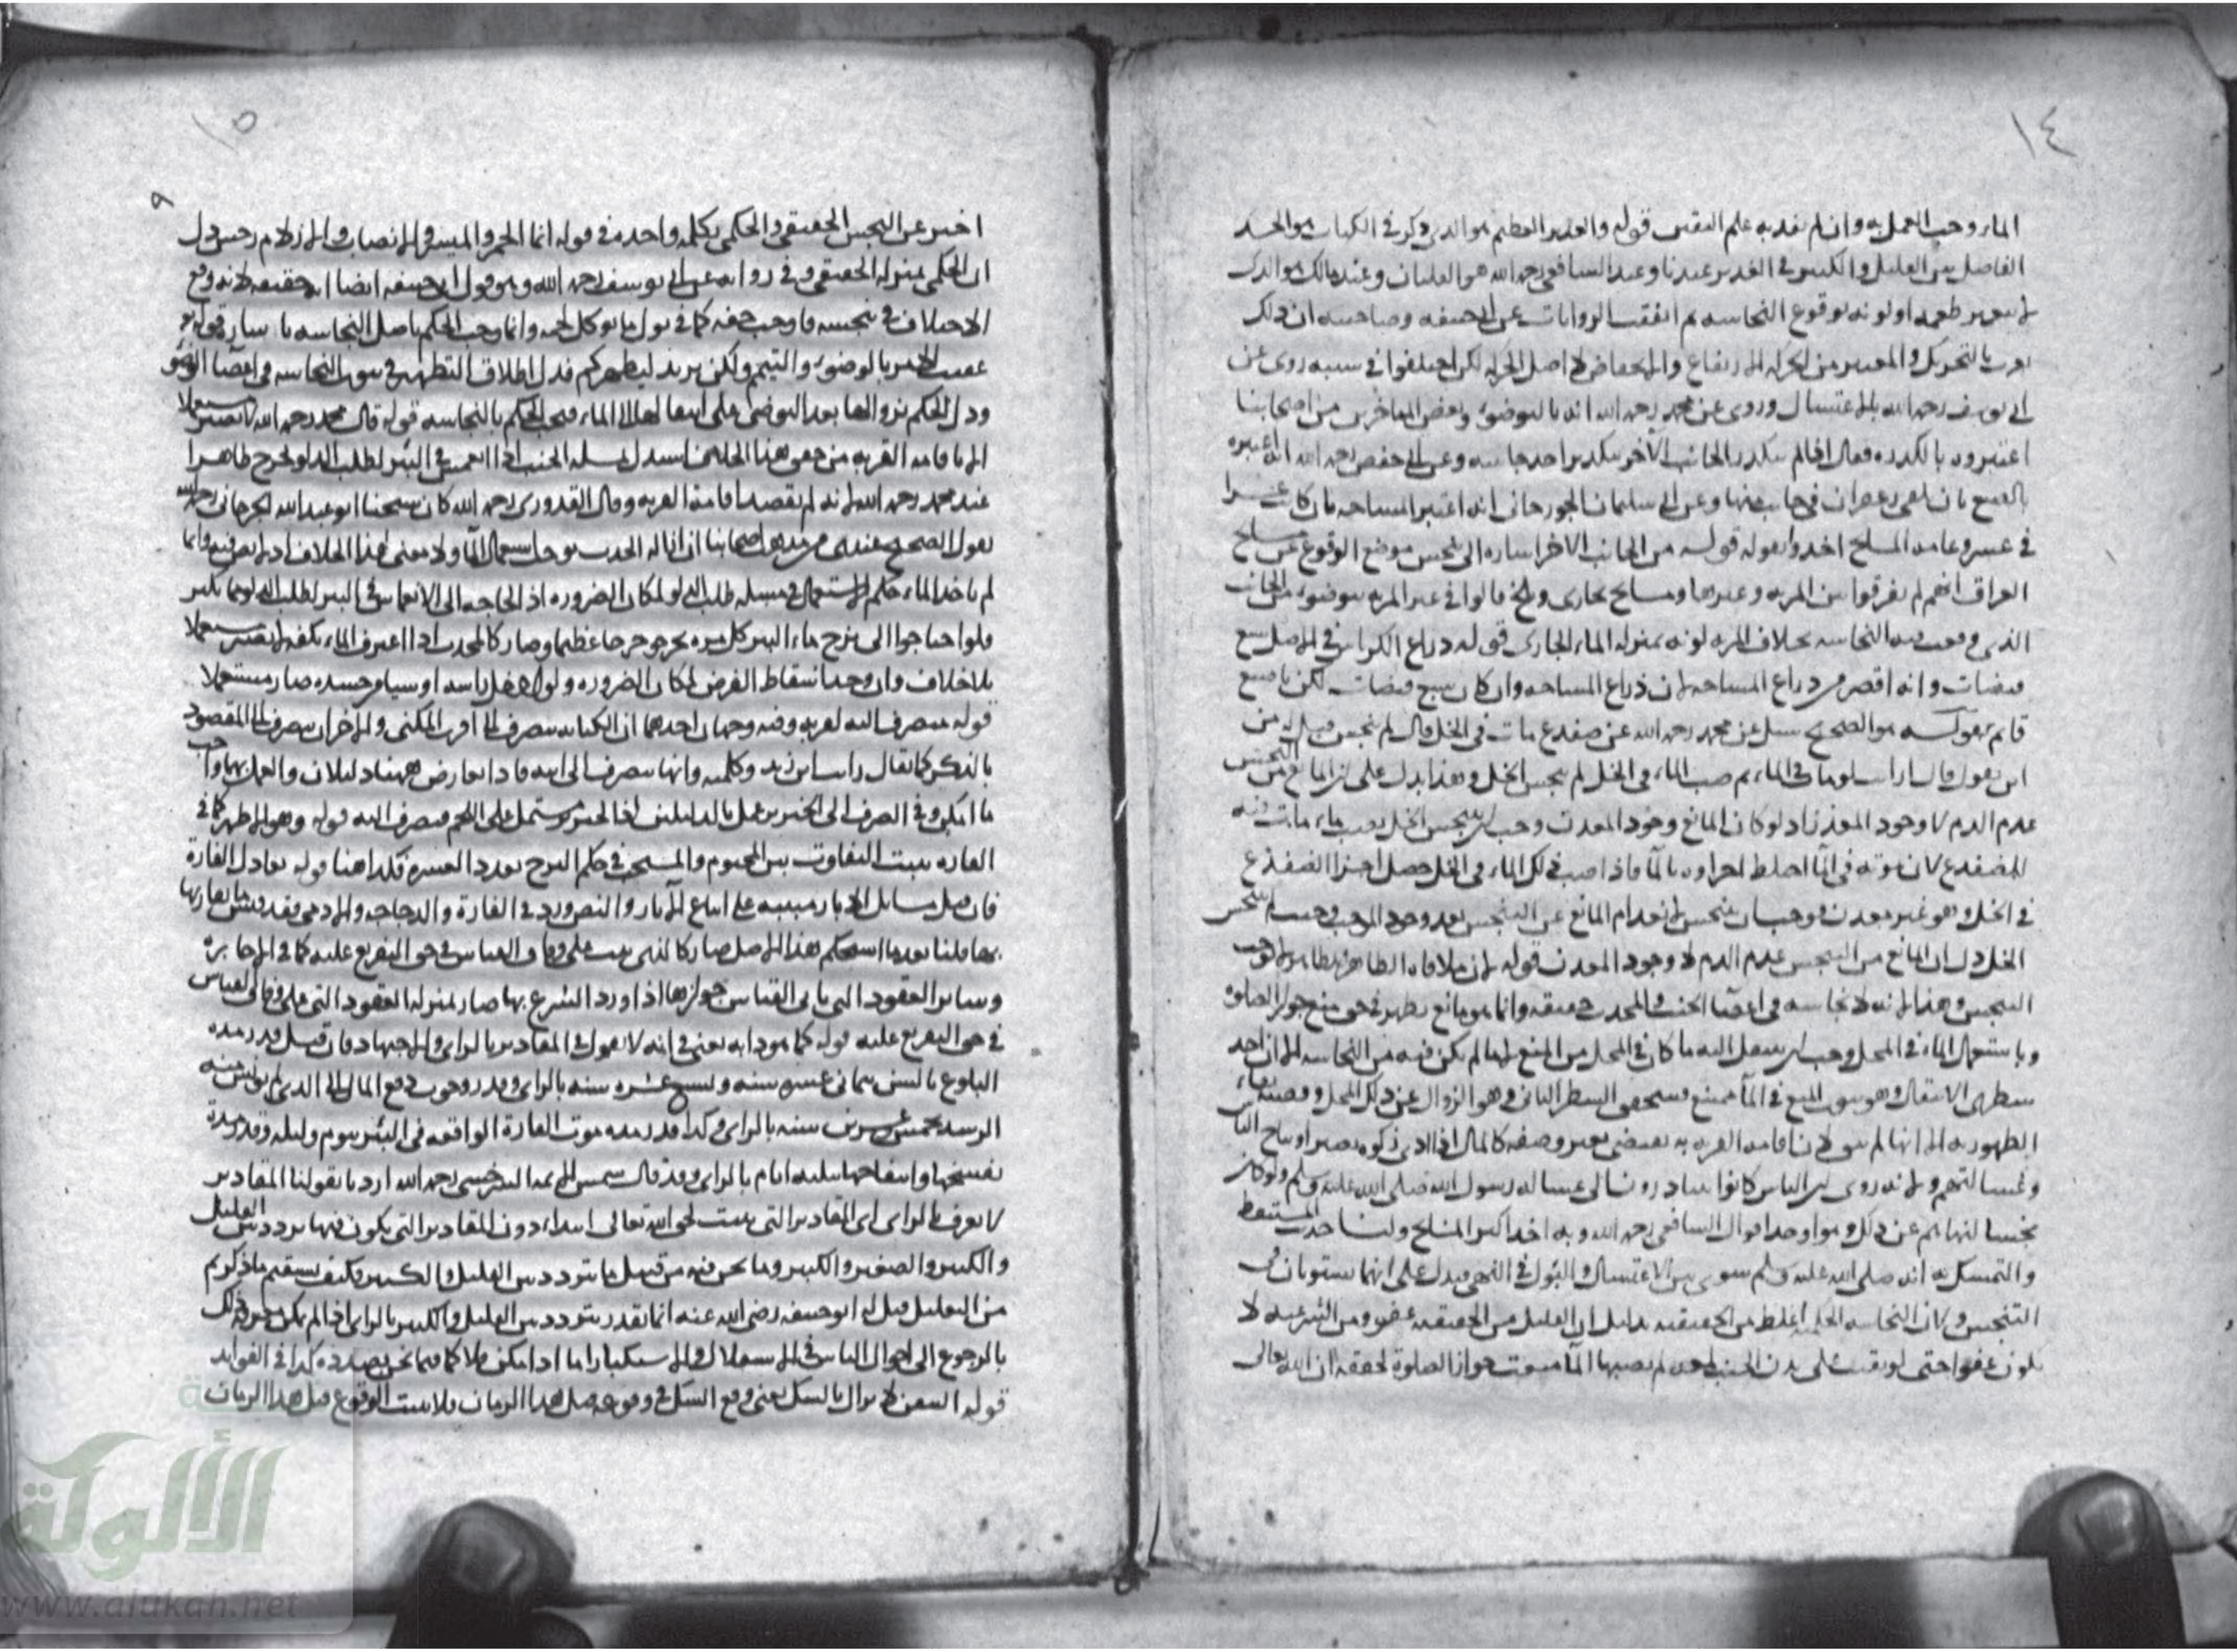 ١٤
الماء وجب العمل به وان لم يفد به علم اليقين قوله والغدير العظيم هو الذي ذكر في الكتاب هو الحد
الفاصل بين القليل والكثير في الغدير عندنا وعند الشافعي رحمه الله هو القلتان وعند مالك هو الذي
لم يتغير طعمه او لونه بوقوع النجاسة ثم اتفقت الروايات عن ابي حنيفه وصاحبيه ان ذلك
يعرف بالتحريك والمعتبر من الحركه الارتفاع والانخفاض لا اصل الحركه لكن اختلفوا في سببه روى عن
ابي يوسف رحمه الله بالاغتسال وروى عن محمد رحمه الله انه بالتوضؤ وبعض المتاخرين من اصحابنا
اعتبروه بالكدره فقال اذا لم يتكدر الجانب الآخر بتكدير احد جانبيه وعن ابي حفص رحمه الله انه اعتبره
بالصبغ بان يلقى زعفران في جانب منها وعن ابي سليمان الجوزجاني انه اعتبر المساحه فان كان عشرا
في عشر وعامه المشايخ اخذوا بقوله قوله من الجانب الاخر اشاره الى تنجس موضع الوقوع عن مشايخ
العراق انهم لم يفرقوا بين المريه وغيرها ومشايخ بخارى وبلخ قالوا في غير المريه يتوضؤ من الجانب
الذي وقعت فيه النجاسه بخلاف المريه لكونه بمنزله الماء الجاري قوله ذراع الكرباس في الاصل سبع
قبضات وانه اقصر من ذراع المساحه لان ذراع المساحه وان كان سبع قبضات لكن باصبع
قائم بقوله هو الصحيح سئل عن محمد رحمه الله عن ضفدع مات في الخل قال لم ينجس قيل له من
اين تقول قال ارايت لو مات في الماء ثم صب الماء في الخل لم ينجس الخل وهذا يدل على ان المانع من التنجس
عدم الدم لا وجود المعدن اذ لو كان المانع وجود المعدن وجب ان يتنجس الخل بصب ماء مات فيه
الضفدع لان موته في الما اختلط اجزاوه بالما فاذا صب ذلك الماء في الخل حصل اجزا الضفدع
في الخل وهو غير معدن فوجب ان يتنجس لانعدام المانع عن التنجس بعد وجود الموجب وحيث لم يتنجس
الخل دل ان المانع من التنجس عدم الدم لا وجود المعدن قوله لان ملاقاه الطاهر الطاهر لا توجب
التنجيس وهذا لانه لا نجاسه في اعضا الجنب والمحدث حقيقه وانما هو مانع يظهر في حق منع جواز الصلوه
وباستعمال الماء في المحل وجب ان ينتقل اليه ما كان في المحل من المنع لما لم يكن فيه من النجاسه الا ان احد
شطري الانتقال وهو ثبوت المنع في الما ممتنع فيتحقق الشطر الثاني وهو الزوال عن ذلك المحل وقضيته بقاء
الطهوريه الا انها لم تبق لان اقامه القربه به يقتضي تغير وصفه كالمال اذا ادى زكوه يصير اوساخ الناس
وغسالتهم ولانه روى ان الناس كانوا يتبادرون الى غساله رسول الله صلى الله عليه وسلم ولو كان
نجسا لنهاهم عن ذلك وهو احد اقوال الشافعي رحمه الله وبه اخذ اكثر المشايخ ولنا حديث المستيقظ
والتمسك به انه صلى الله عليه وسلم سوى بين الاغتسال والبول في النهي فيدل على انهما يستويان في
التنجيس ولان النجاسه الحكميه اغلظ من الحقيقيه بدليل ان القليل من الحقيقيه عفو ومن الشرعيه لا
يكون عفوا حتى لو بقيت على بدن الجنب لمعه لم يصبها الما منعت جواز الصلوة تحققه ان الله تعالى
١٥
٩
اخبر عن النجس الحقيقي والحكمي بكلمه واحده في قوله انما الخمر والميسر والانصاب والازلام رجس دل
ان الحكمي بمنزله الحقيقي وفي روايه عن ابي يوسف رحمه الله وهو قول ابي حنيفه ايضا انه خفيفه لانه وقع
الاختلاف في تنجسه فاوجب خفه كما في بول ما يوكل لحمه وانما وجب الحكم باصل النجاسه باشاره قوله تع
عقيب الامر بالوضوء والتيمم ولكن يريد ليطهركم فدل اطلاق التطهير في ثبوت النجاسه في اعضا الوضو
ودل الحكم بزوالها بعد التوضي على انتقالها الى الماء فيجب الحكم بالنجاسه قوله قال محمد رحمه الله لا يصير مستعملا
الا باقامه القربه من حقق هذا الخلاف استدل بمسله الجنب اذا انغمس في البئر لطلب الدلو يخرج طاهرا
عند محمد رحمه الله لانه لم يقصد اقامة القربه وقال القدوري رحمه الله كان شيخنا ابو عبد الله الجرجاني رحمه الله
يقول الصحيح عندي من مذهب اصحابنا ان ازاله الحدث يوجب استعمال الما ولا معنى لهذا الخلاف اذ لا نص فيه وانما
لم ياخذ الماء حكم الاستعمال في مسله طلب الدلو لمكان الضروره اذ الحاجه الى الانغماس في البئر لطلب الدلو مما يكثر
فلو احتاجوا الى نزح ماء البئر كل مره يحرجوا حرجا عظيما وصار كالمحدث اذا اغترف الماء بكفه لا يصير مستعملا
بلا خلاف وان وجد اسقاط الفرض لمكان الضروره ولو ادخل راسه او شيا من جسده صار مستعملا
قوله ينصرف اليه لقربه وفيه وجهان احدهما ان الكنايه ينصرف الى اقرب المكنى والاخر ان ينصرف الى المقصود
بالذكر كما يقال رايت ابن زيد وكلمته وانها ينصرف الى ابنه فاذا تعارض ههنا دليلان والعمل بهما واجب
ما امكن وفي الصرف الى الخنزير عمل بالدليلين اذ الخنزير يشتمل على اللحم فينصرف اليه قوله وهو الاظهر كما في
الفاره يثبت التفاوت بين المحتوم والمستحب في حكم النزح بعدد العشره فكذا هنا قوله تعادل الفارة
فان قيل مسائل الابار مبنيه على اتباع الآثار والنص ورد في الفارة والدجاجه والادمي فقد قيس ما يعادلها
بها قلنا بعد ما استحكم هذا الاصل صار كالذي ثبت على وفاق القياس في حق التفريع عليه كما في الاجاره
وسائر العقود التي يابى القياس جوازها اذا ورد الشرع بها صار بمنزله العقود التي على وفاق القياس
في حق التفريع عليه قوله كما هو دابه يعني في انه لا يقول في المقادير بالراي والاجتهاد فان قيل قدر مده
البلوغ بالسن بثماني عشره سنه وتسع عشره سنه بالراي وقدر وجوب دفع المال الى الذي لم يونس منه
الرشد بخمس وعشرين سنه بالراي وكذا قدر مده موت الفارة الواقعه في البئر بيوم وليله وقدر مدة
تفسخها وانتفاخها بثلثه ايام بالراي وقد قال شمس الايمه السرخسي رحمه الله ارد بما يقولنا المقادير
لا تعرف بالراي اي المقادير التي يثبت لحق الله تعالى ابتداء دون المقادير التي يكون فيها تردد بين القليل
والكثير والصغير والكبير وما نحن فيه من قبيل ما يتردد بين القليل والكثير فكيف يستقيم ما ذكرتم
من التعليل قيل له ابو حنيفه رضي الله عنه انما يقدر بتردد بين القليل والكثير بالراي اذا لم يكن معرفة ذلك
بالرجوع الى احوال الناس في الاستقلال والاستكثار اما اذا امكن فلا كما فيما نحن بصدده كذا في الفوائد
قوله اليقين لا يزال بالشك يعني وقع الشك في وقوعه قبل هذا الزمان فلا يثبت الوقوع قبل هذا الزمان
الألوكة
www.alukah.net